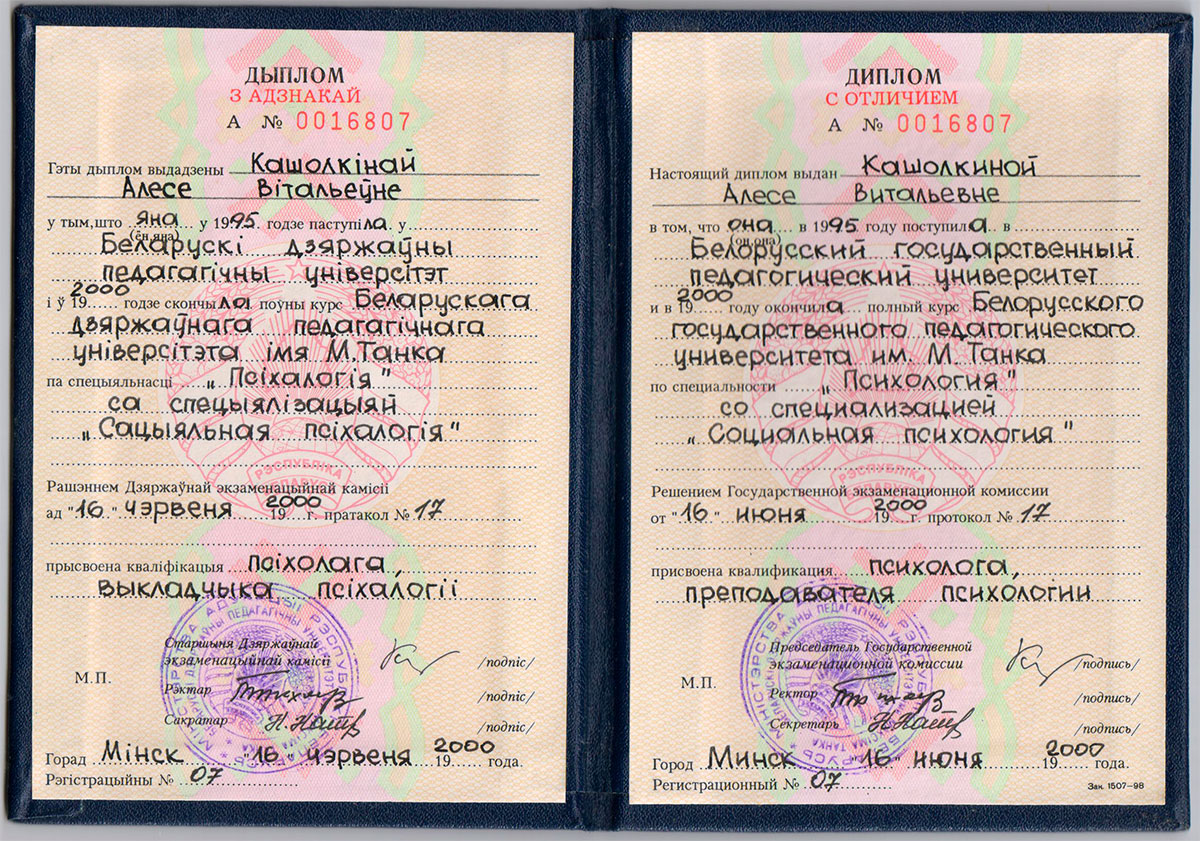 ДЫПЛОМ
З АДЗНАКАЙ
А № 0016807
Гэты дыплом выдадзены Кашолкінай
Алесе Вітальеўне
у тым, што яна у 1995 годзе паступіла у
(ён, яна)
Беларускі дзяржаўны
педагагічны універсітэт
і ў 19 2000 годзе скончыла поўны курс Беларускага
дзяржаўнага педагагічнага
універсітэта імя М.Танка
па спецыяльнасці „Псіхалогія"
са спецыялізацыяй
„Сацыяльная псіхалогія"
Рашэннем Дзяржаўнай экзаменацыйнай камісіі
ад "16" чэрвеня 19 2000 г. пратакол № 17
прысвоена кваліфікацыя псіхолага,
выкладчыка псіхалогіі
Старшыня Дзяржаўнай
экзаменацыйнай камісіі /подпіс/
М.П.
Рэктар /подпіс/
Сакратар /подпіс/
Горад Мінск "16" чэрвеня 19 2000 года.
Рэгістрацыйны № 07
РЭСПУБЛІКА
БЕЛАРУСЬ
ДИПЛОМ
С ОТЛИЧИЕМ
А № 0016807
Настоящий диплом выдан Кашолкиной
Алесе Витальевне
в том, что она в 1995 году поступила в
(он, она)
Белорусский государственный
педагогический университет
и в 19 2000 году окончила полный курс Белорусского
государственного педагогического
университета им. М. Танка
по специальности „Психология"
со специализацией
„Социальная психология"
Решением Государственной экзаменационной комиссии
от "16" июня 19 2000 г. протокол № 17
присвоена квалификация психолога,
преподавателя психологии
Председатель Государственной
экзаменационной комиссии /подпись/
М.П.
Ректор /подпись/
Секретарь /подпись/
Город Минск "16" июня 19 2000 года.
Регистрационный № 07
Зак. 1507–98
РЭСПУБЛІКА
БЕЛАРУСЬ